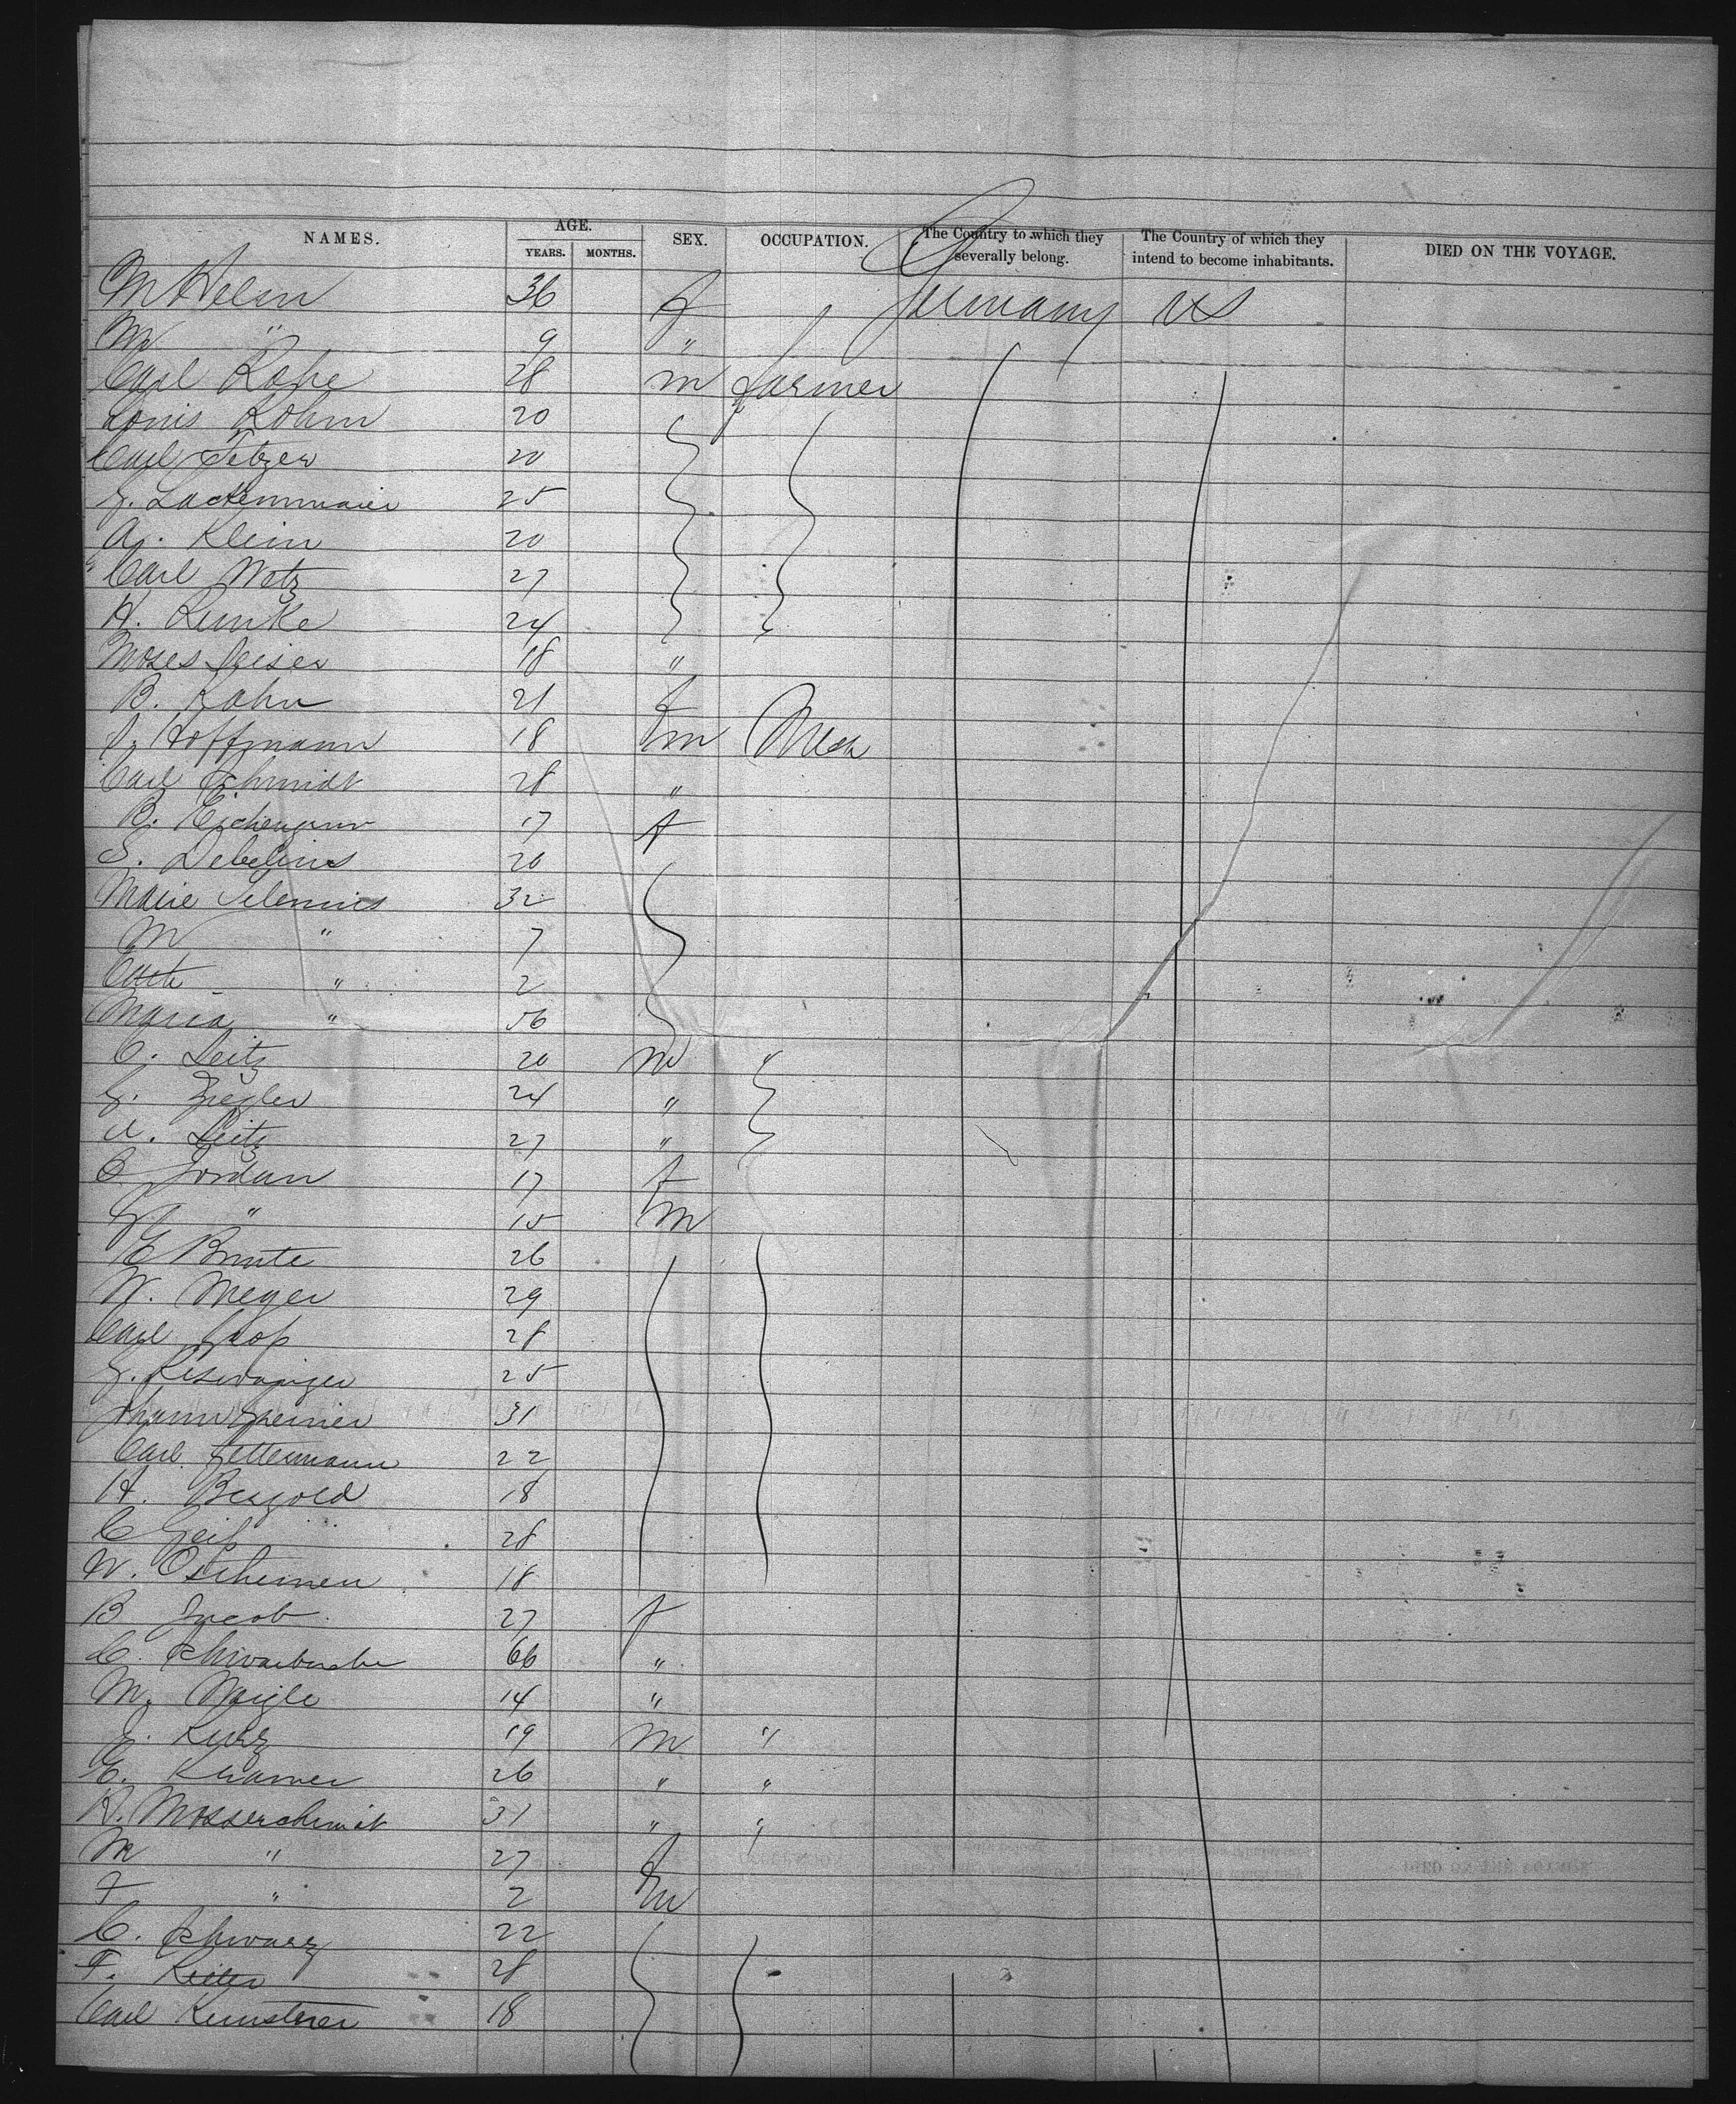 NAMES. AGE. YEARS. MONTHS. SEX. OCCUPATION. The Country to which they severally belong. The Country of which they intend to become inhabitants. DIED ON THE VOYAGE.
M Helm 36 f Germany US
M " 9 "
Carl Rohe 28 m farmer
Louis Rohm 20
Carl 20
J. Lackenmaier 25
A. Klein 20
Carl Metz 27
H. Lemke 24
Moses 18 "
B. Kahn 21 f
J. Hoffmann 18 m Mech
Carl Schmidt 28 "
B. 17 f
S. Debelius 20
Marie 32
M " 7
Cath " 2
Maria " 56
C. Seitz 20 m "
G. Ziegler 24 "
A. Seitz 27 "
C Jordan 17 f
G " 15 m
E Brunte 26
W. Meyer 29
Carl 28
G. 25
Johann 31
Carl Gettermann 22
H. Bergold 18
C Geiß 28
W. 18
B Jacob 27 f
C. 66 "
M. Maigle 14 "
J. Kurz 19 m "
E. Kramer 26 " "
R. Mosserschmit 31 " "
M " 27 f
F " 2 m
C. Schwarz 22
F. Keiter 28
Carl 18